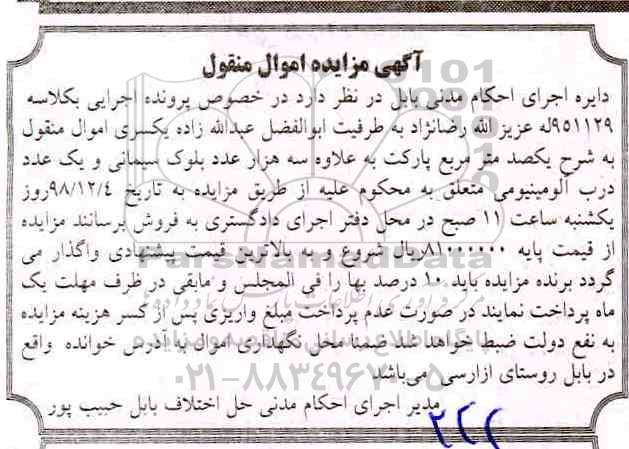 آگهی مزایده اموال منقول
دایره اجرای احکام مدنی بابل در نظر دارد در خصوص پرونده اجرایی بکلاسه
۹۵۱۱۲۹له عزیز الله رضانژاد به طرفیت ابوالفضل عبدالله زاده یکسری اموال منقول
به شرح یکصد متر مربع پارکت به علاوه سه هزار عدد بلوک سیمانی و یک عدد
درب آلومینیومی متعلق به محکوم علیه از طریق مزایده به تاریخ ۹۸/۱۲/٤روز
یکشنبه ساعت ۱۱ صبح در محل دفتر اجرای دادگستری به فروش برسانند مزایده
از قیمت پایه ۸۱۰۰۰۰۰۰ریال شروع و به بالاترین قیمت پیشنهادی واگذار می
گردد برنده مزایده باید ۱۰ درصد بها را فی المجلس و مابقی در ظرف مهلت یک
ماه پرداخت نمایند در صورت عدم پرداخت مبلغ واریزی پس از کسر هزینه مزایده
به نفع دولت ضبط خواهد شد ضمنا محل نگهداری اموال با آدرس خوانده واقع
در بابل روستای ازارسی میباشد
مدیر اجرای احکام مدنی حل اختلاف بابل حبیب پور
ParsNamadData
۰۲۱-۸۸۳٤۹۶۷۰-۵